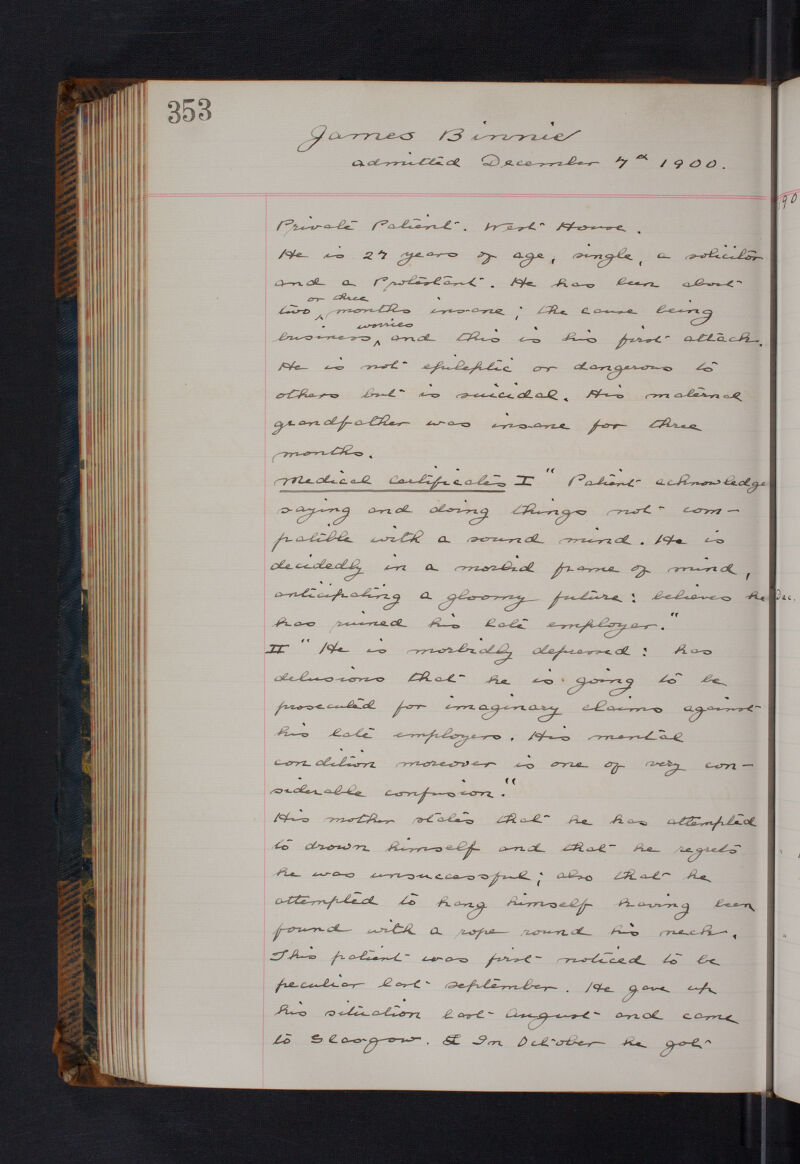 353
James Binnie
admitted December 7th 1900.
Private Patient. West House.
He is 27 years of age, single, a solicitor
and a Protestant. He has been about
or three
two ^ months insane; the cause being
worries
business ^ and this is his first attack.
He is not epileptic or dangerous to
others but is suicidal. His maternal
grandfather was insane for three
months.
Medical Certificates I "Patient acknowledge
saying and doing things not com-
patible with a sound mind. He is
decidedly in a morbid frame of mind,
anticipating a gloomy future: believes he
has ruined his late employer."
II "He is morbidly depressed: has
delusions that he is going to be
prosecuted for imaginary claims against
his late employers. His mental
condition moreover is one of very con-
siderable confusion."
His mother states that he has attempted
to drown himself and that he regrets
he was unsuccessful; also that he
attempted to hang himself having been
found with a rope round his neck.
This patient was first noticed to be
peculiar last September. He gave up
his situation last August and came
to Glasgow. In October he got
190
Dec.